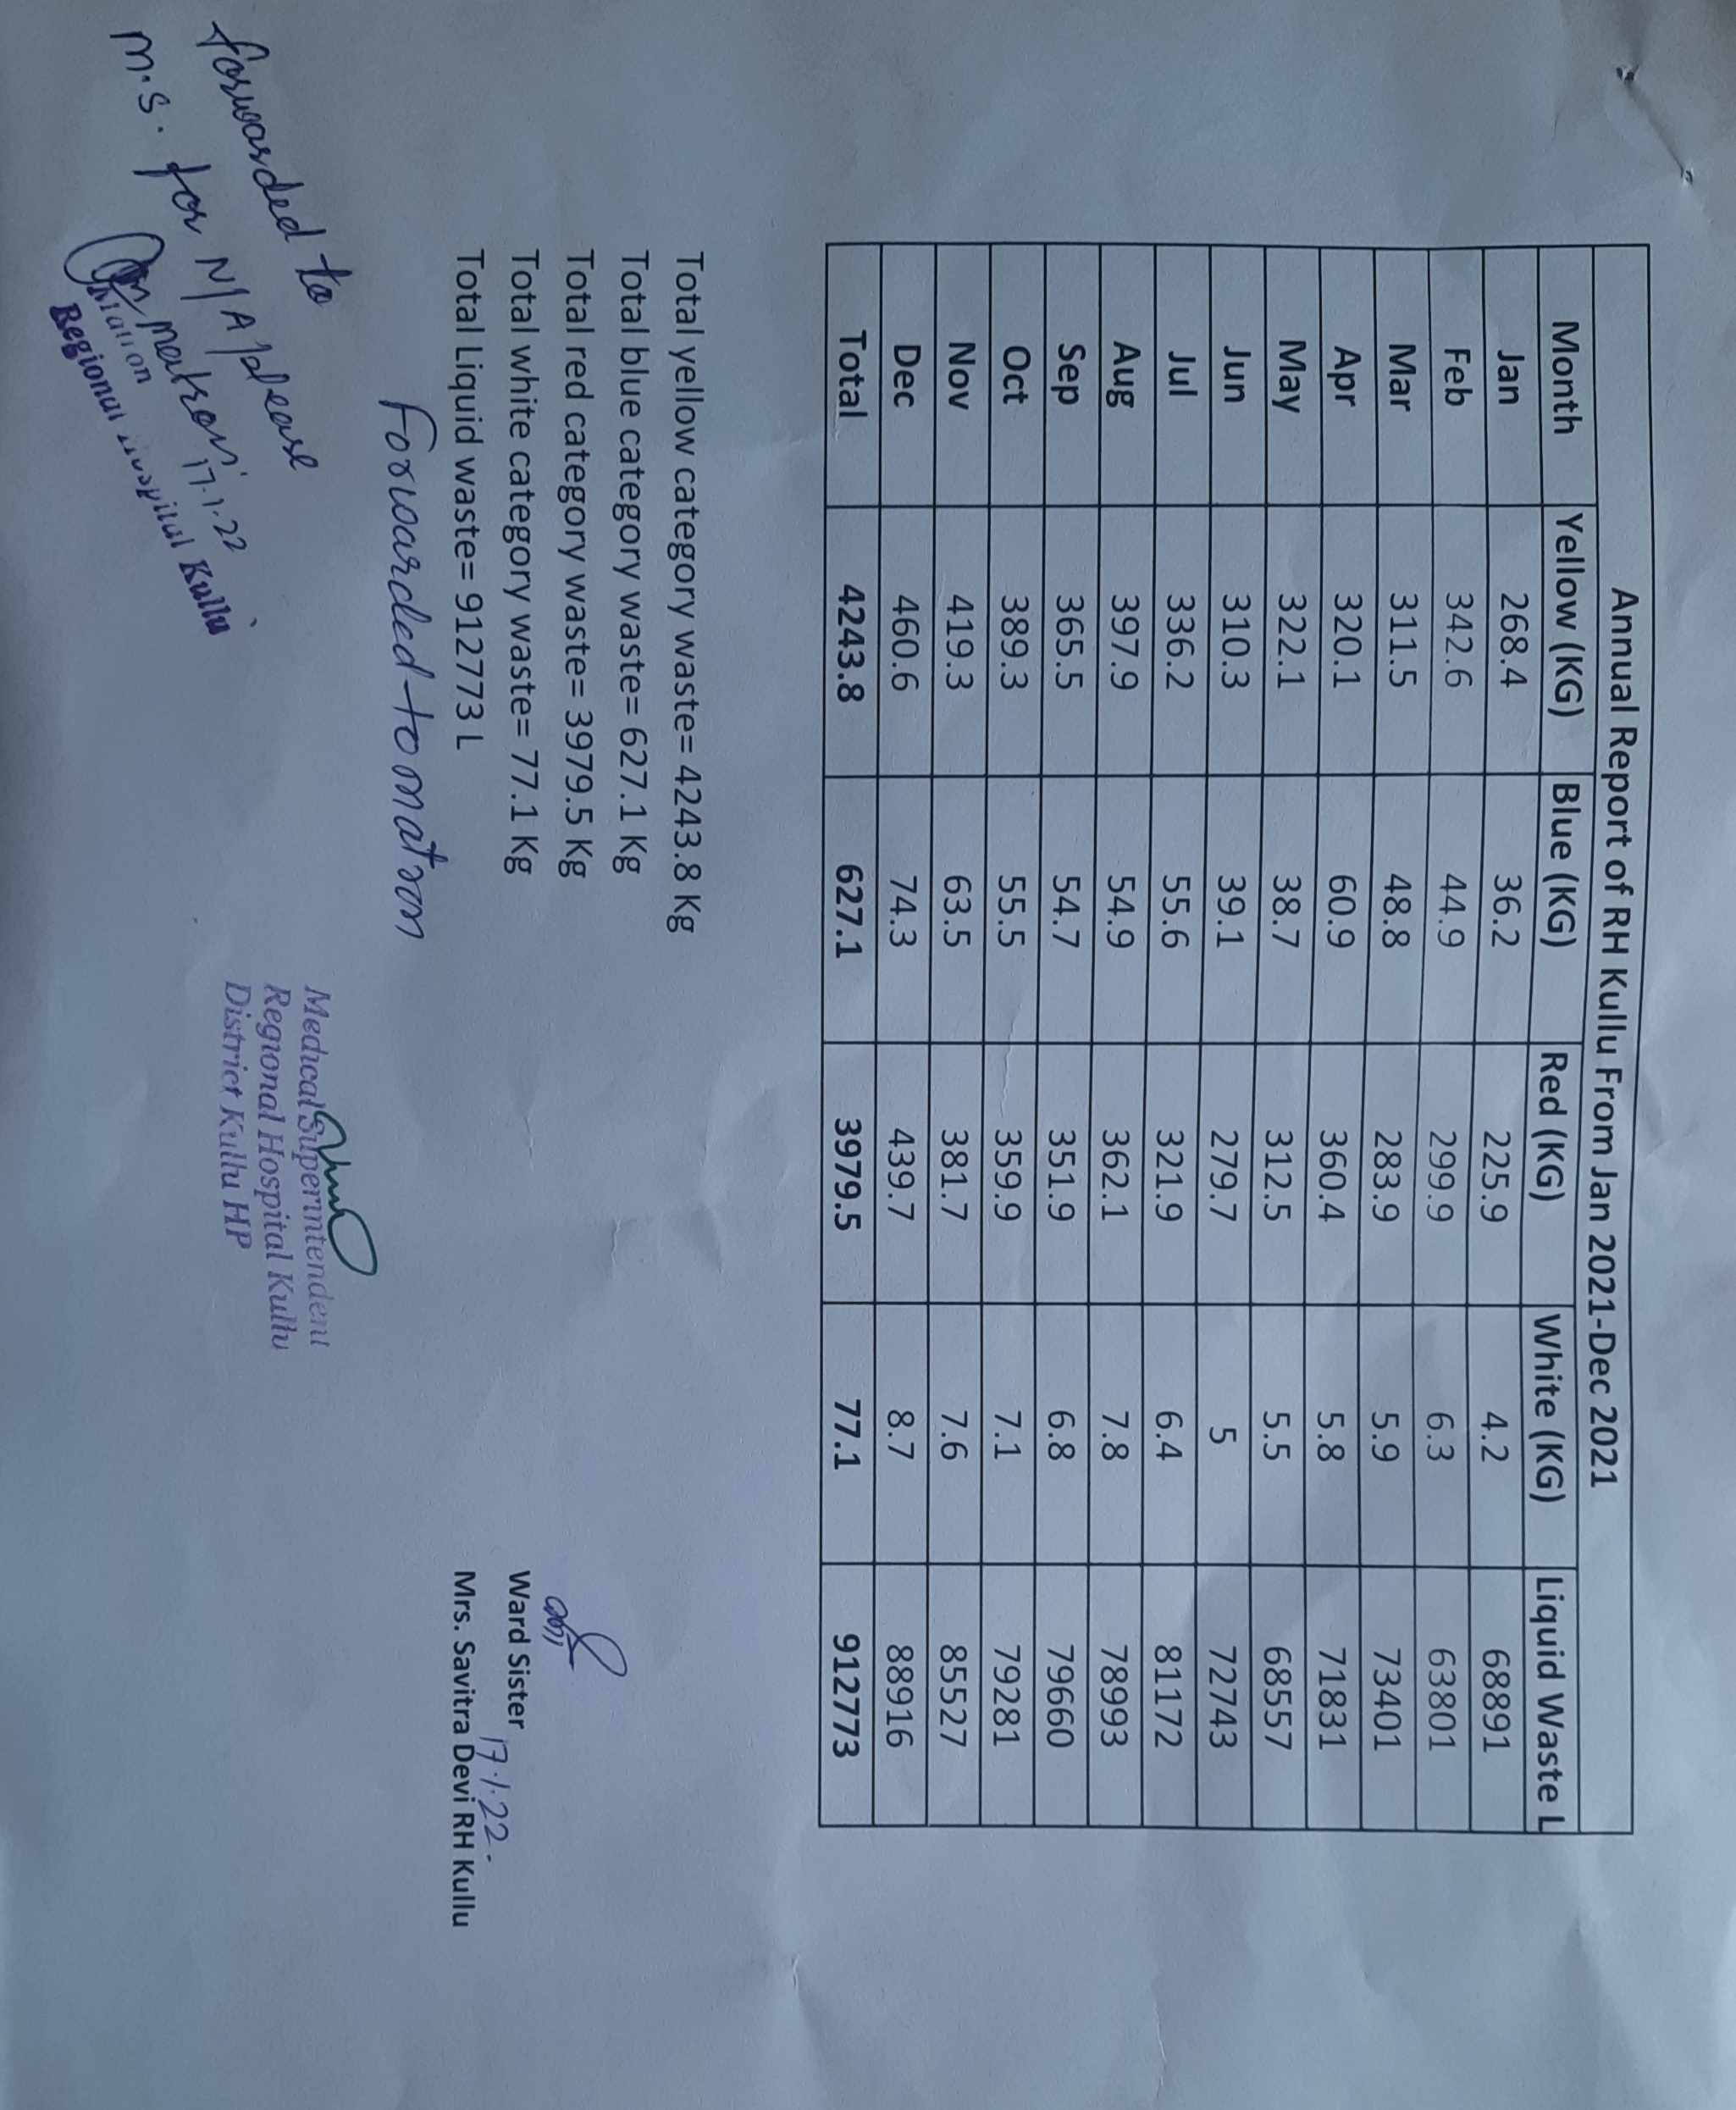 Annual Report of RH Kullu From Jan 2021-Dec 2021
Month Yellow (KG) Blue (KG) Red (KG) White (KG) Liquid Waste L
Jan 268.4 36.2 225.9 4.2 68891
Feb 342.6 44.9 299.9 6.3 63801
Mar 311.5 48.8 283.9 5.9 73401
Apr 320.1 60.9 360.4 5.8 71831
May 322.1 38.7 312.5 5.5 68557
Jun 310.3 39.1 279.7 5 72743
Jul 336.2 55.6 321.9 6.4 81172
Aug 397.9 54.9 362.1 7.8 78993
Sep 365.5 54.7 351.9 6.8 79660
Oct 389.3 55.5 359.9 7.1 79281
Nov 419.3 63.5 381.7 7.6 85527
Dec 460.6 74.3 439.7 8.7 88916
Total 4243.8 627.1 3979.5 77.1 912773
Total yellow category waste= 4243.8 Kg
Total blue category waste= 627.1 Kg
Total red category waste= 3979.5 Kg
Total white category waste= 77.1 Kg
Total Liquid waste= 912773 L
Ward Sister
17.1.22.
Mrs. Savitra Devi RH Kullu
Forwarded to matron
forwarded to
M.S. for N/A please
matron 17.1.22
Matron
Regional Hospital Kullu
Medical Superintendent
Regional Hospital Kullu
District Kullu HP